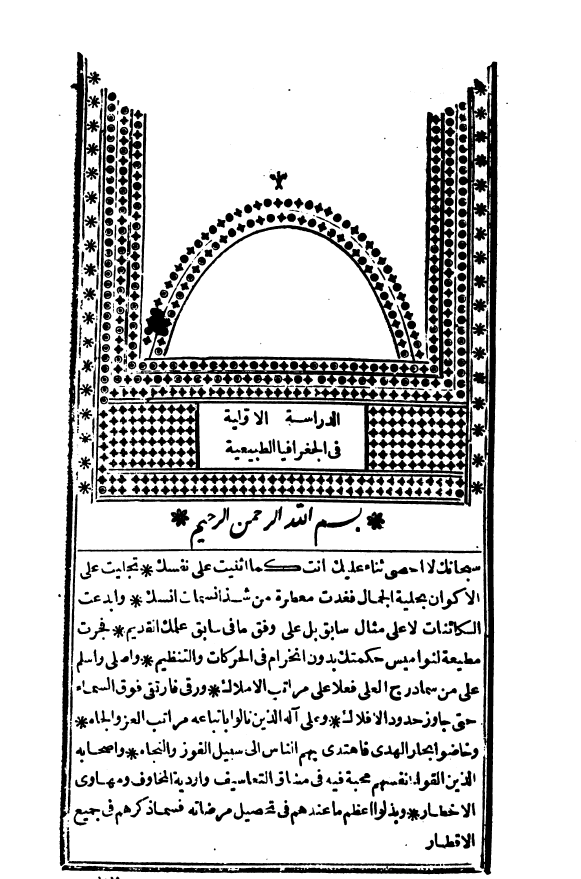 الدراسة الاولية
فى الجغرافيا الطبيعية
بسم الله الرحمن الرحيم
سبحانك لا احصى ثناء عليك انت كما اثنيت على نفسك * تجليت على
الاكوان بحلية الجمال فغدت معطرة من شذا نسمات انسك * وابدعت
الكائنات لا على مثال سابق بل على وفق ما فى سابق علمك القديم * فجرت
مطيعة لنواميس حكمتك بدون انخرام فى الحركات والتنظيم * واصلى واسلم
على من سما درج العلى فعلا على مراتب الاملاك * ورقى فارتقى فوق السماء
حتى جاوز حدود الافلاك * وعلى آله الذين نالوا باتباعه مراتب العز والجاه *
وخاضوا بحار الهدى فاهتدى بهم الناس الى سبيل الفوز والنجاه * واصحابه
الذين القوا انفسهم محبة فيه فى مشاق التعاسيف واردية المخاوف ومهاوى
الاخطار * وبذلوا اعظم ما عندهم فى تحصيل مرضاته فسما ذكرهم فى جميع
الاقطار